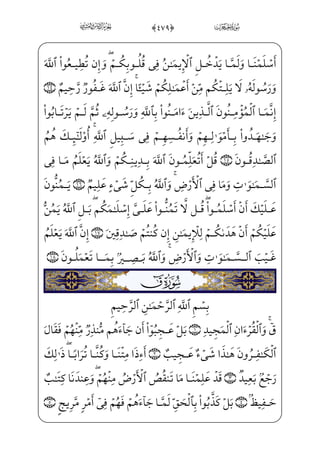 ﴿٤٧٩﴾
أَسْلَمْنَا وَلَمَّا يَدْخُلِ ٱلْإِيمَـٰنُ فِى قُلُوبِكُمْ ۖ وَإِن تُطِيعُوا۟ ٱللَّهَ
وَرَسُولَهُۥ لَا يَلِتْكُم مِّنْ أَعْمَـٰلِكُمْ شَيْـًٔا ۚ إِنَّ ٱللَّهَ غَفُورٌ رَّحِيمٌ ﴿١٤﴾
إِنَّمَا ٱلْمُؤْمِنُونَ ٱلَّذِينَ ءَامَنُوا۟ بِٱللَّهِ وَرَسُولِهِۦ ثُمَّ لَمْ يَرْتَابُوا۟
وَجَـٰهَدُوا۟ بِأَمْوَٰلِهِمْ وَأَنفُسِهِمْ فِى سَبِيلِ ٱللَّهِ ۚ أُو۟لَـٰٓئِكَ هُمُ
ٱلصَّـٰدِقُونَ ﴿١٥﴾ قُلْ أَتُعَلِّمُونَ ٱللَّهَ بِدِينِكُمْ وَٱللَّهُ يَعْلَمُ مَا فِى
ٱلسَّمَـٰوَٰتِ وَمَا فِى ٱلْأَرْضِ ۚ وَٱللَّهُ بِكُلِّ شَىْءٍ عَلِيمٌ ﴿١٦﴾ يَمُنُّونَ
عَلَيْكَ أَنْ أَسْلَمُوا۟ ۖ قُل لَّا تَمُنُّوا۟ عَلَىَّ إِسْلَـٰمَكُم ۖ بَلِ ٱللَّهُ يَمُنُّ
عَلَيْكُمْ أَنْ هَدَىٰكُمْ لِلْإِيمَـٰنِ إِن كُنتُمْ صَـٰدِقِينَ ﴿١٧﴾ إِنَّ ٱللَّهَ يَعْلَمُ
غَيْبَ ٱلسَّمَـٰوَٰتِ وَٱلْأَرْضِ ۚ وَٱللَّهُ بَصِيرٌۢ بِمَا تَعْمَلُونَ ﴿١٨﴾
سُورَةُ ق
بِسْمِ ٱللَّهِ ٱلرَّحْمَـٰنِ ٱلرَّحِيمِ
قٓ ۚ وَٱلْقُرْءَانِ ٱلْمَجِيدِ ﴿١﴾ بَلْ عَجِبُوٓا۟ أَن جَآءَهُم مُّنذِرٌ مِّنْهُمْ فَقَالَ
ٱلْكَـٰفِرُونَ هَـٰذَا شَىْءٌ عَجِيبٌ ﴿٢﴾ أَءِذَا مِتْنَا وَكُنَّا تُرَابًا ۖ ذَٰلِكَ
رَجْعٌۢ بَعِيدٌ ﴿٣﴾ قَدْ عَلِمْنَا مَا تَنقُصُ ٱلْأَرْضُ مِنْهُمْ ۖ وَعِندَنَا كِتَـٰبٌ
حَفِيظٌۢ ﴿٤﴾ بَلْ كَذَّبُوا۟ بِٱلْحَقِّ لَمَّا جَآءَهُمْ فَهُمْ فِىٓ أَمْرٍ مَّرِيجٍ ﴿٥﴾